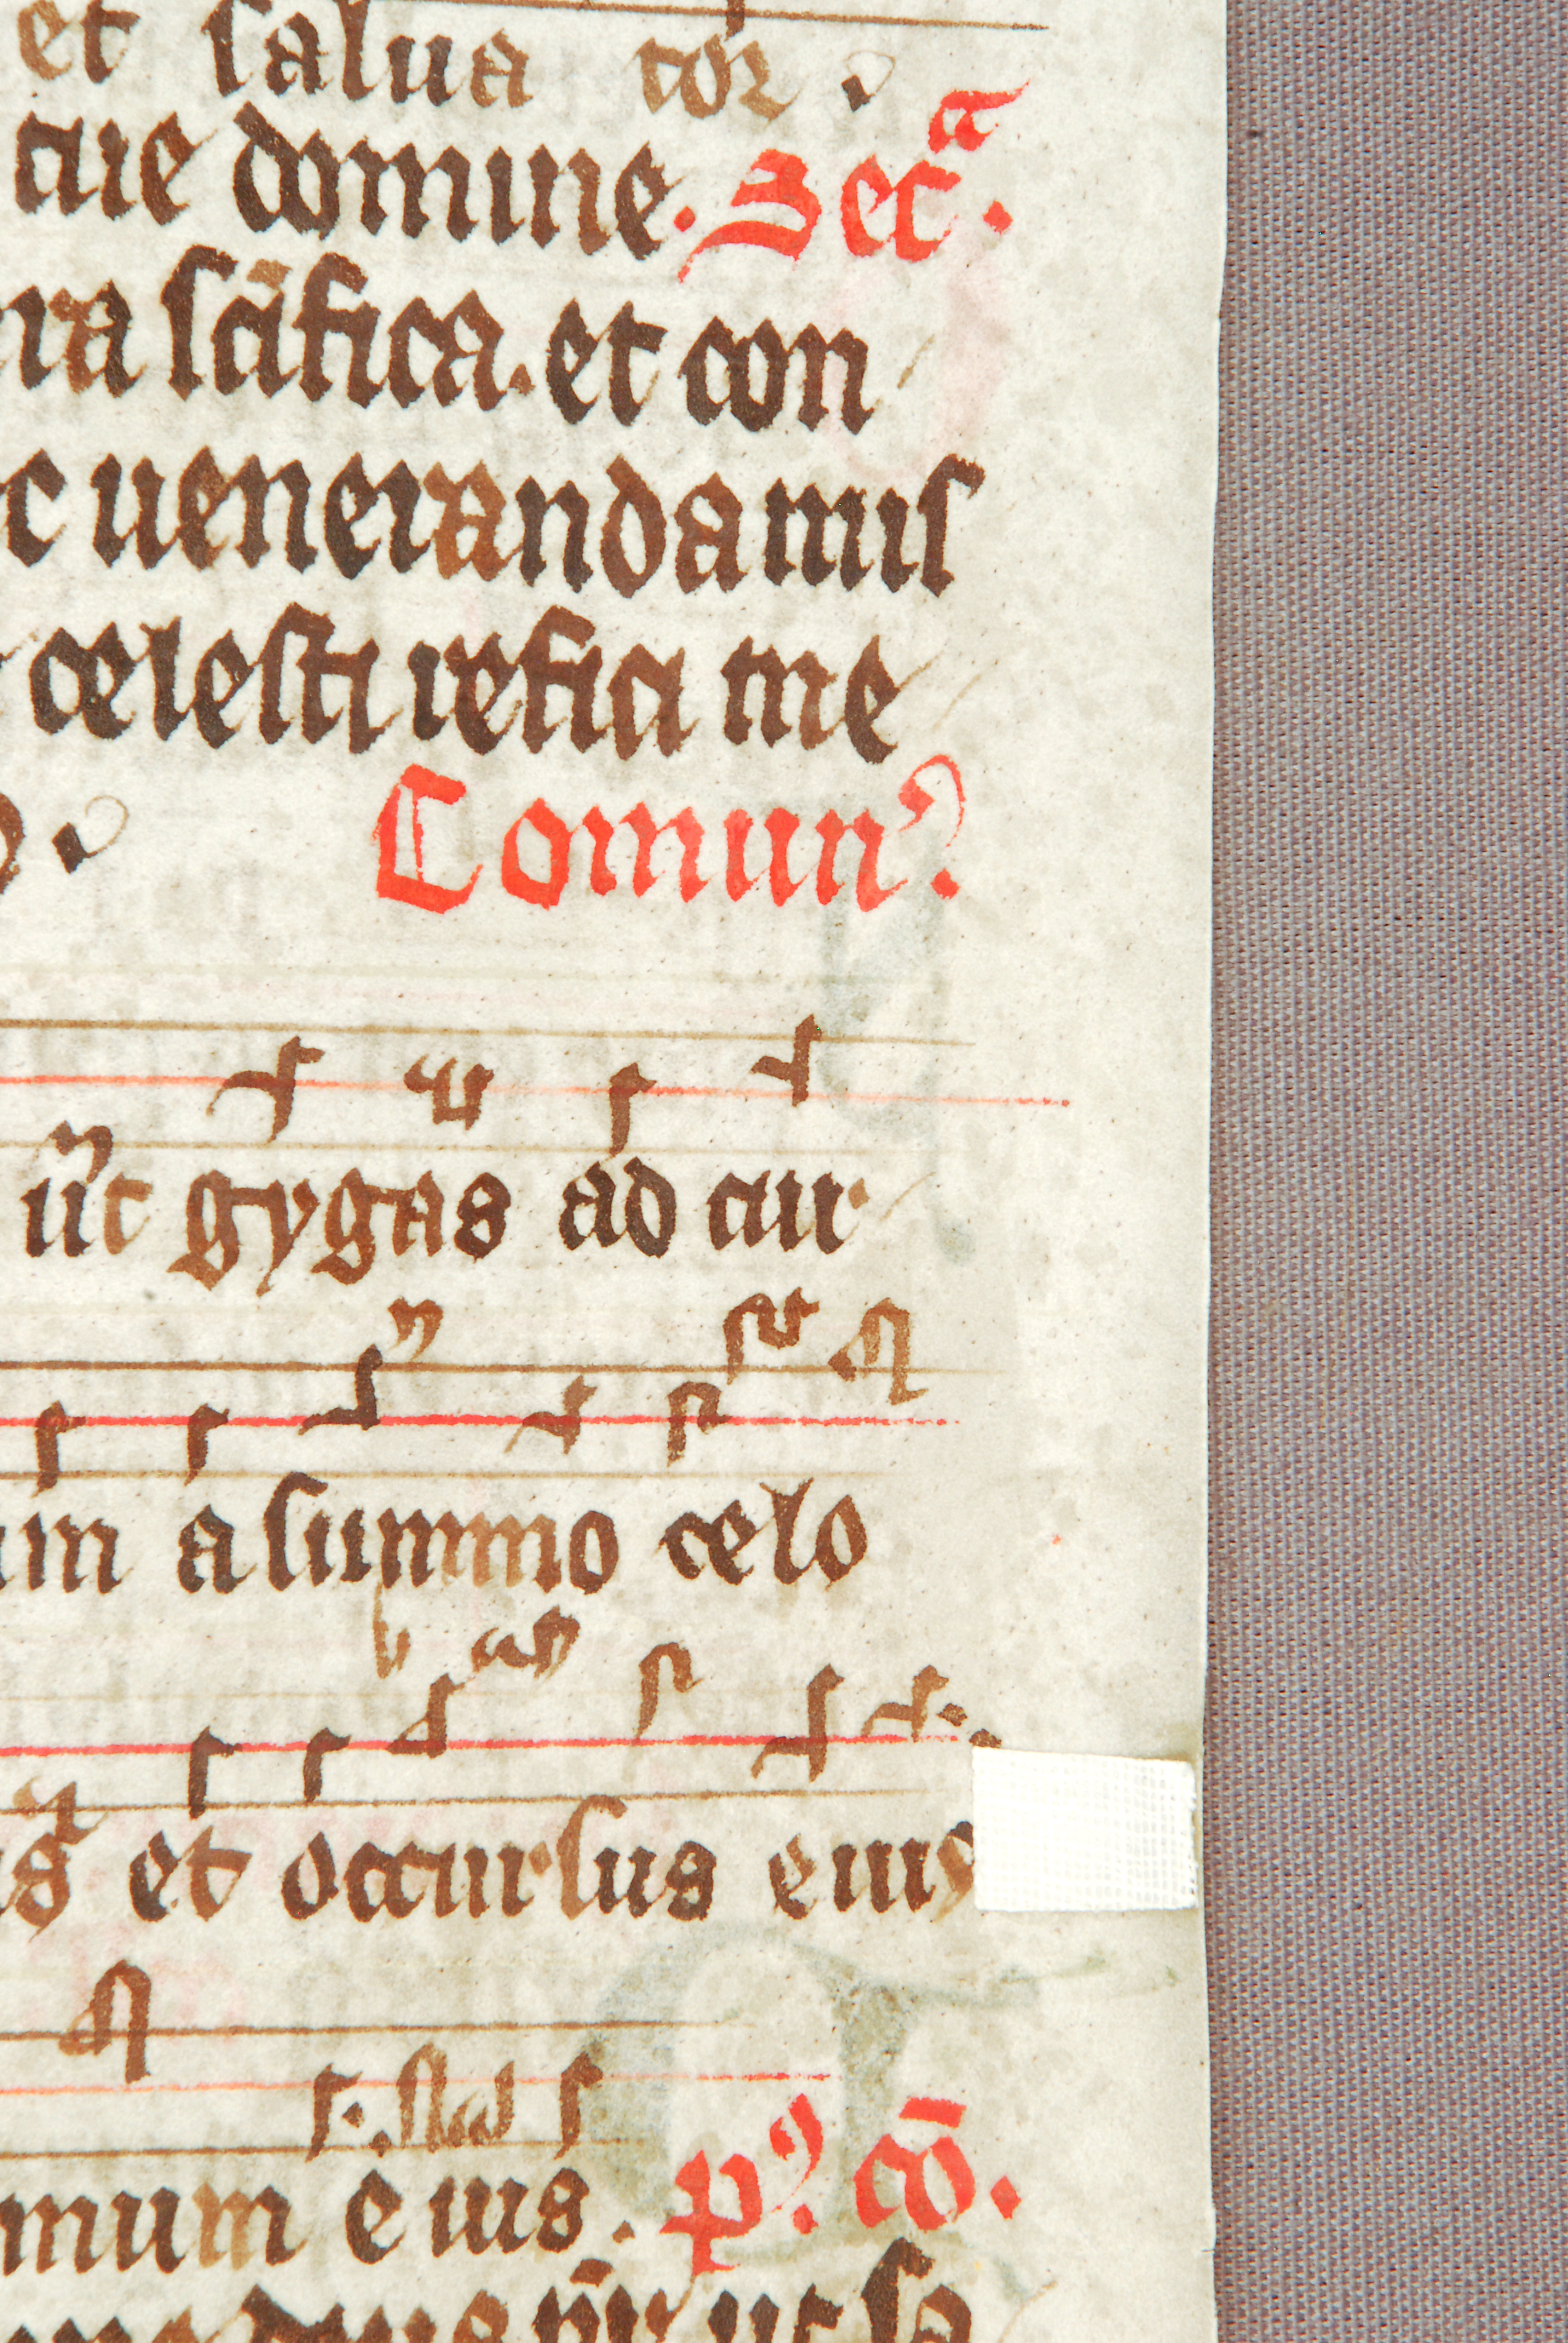 et salua cor
aue domine. Secᵃ.
ra scifica. et con
c uenerandamis
celesti refici me
Comunꝰ
ut gygas ad cur
um a summo celo
et occursus eius
mum eius. pꝰ. cō.
ut sa